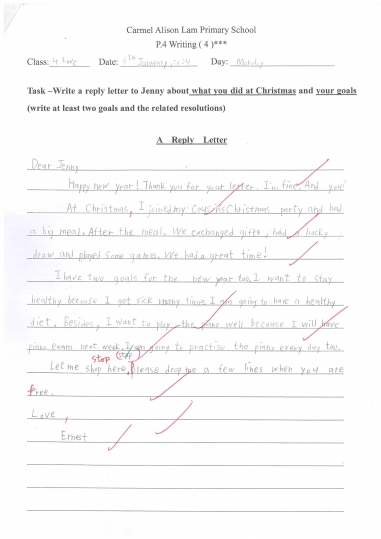 Carmel Alison Lam Primary School
P.4 Writing ( 4 )***
Class: 4 Love Date: 6TH January, Day: Monday
Task –Write a reply letter to Jenny about what you did at Christmas and your goals
(write at least two goals and the related resolutions)
A Reply Letter
Dear Jenny
Happy new year! Thank you for your letter. I'm fine. And you?
At Christmas, I joined my cousins Christmas party and had
a big meal. After the meal. We exchanged gifts, had a lucky
draw and played some games. We had a great time!
I have two goals for the new year too. I want to stay
healthy because I got sick many times. I am going to have a healthy
diet. Besides, I want to play the piano well because I will have
piano exam next week. I am going to practise the piano every day too.
stop (stop)
Let me shop here. Please drop me a few lines when you are
free.
Love,
Ernest